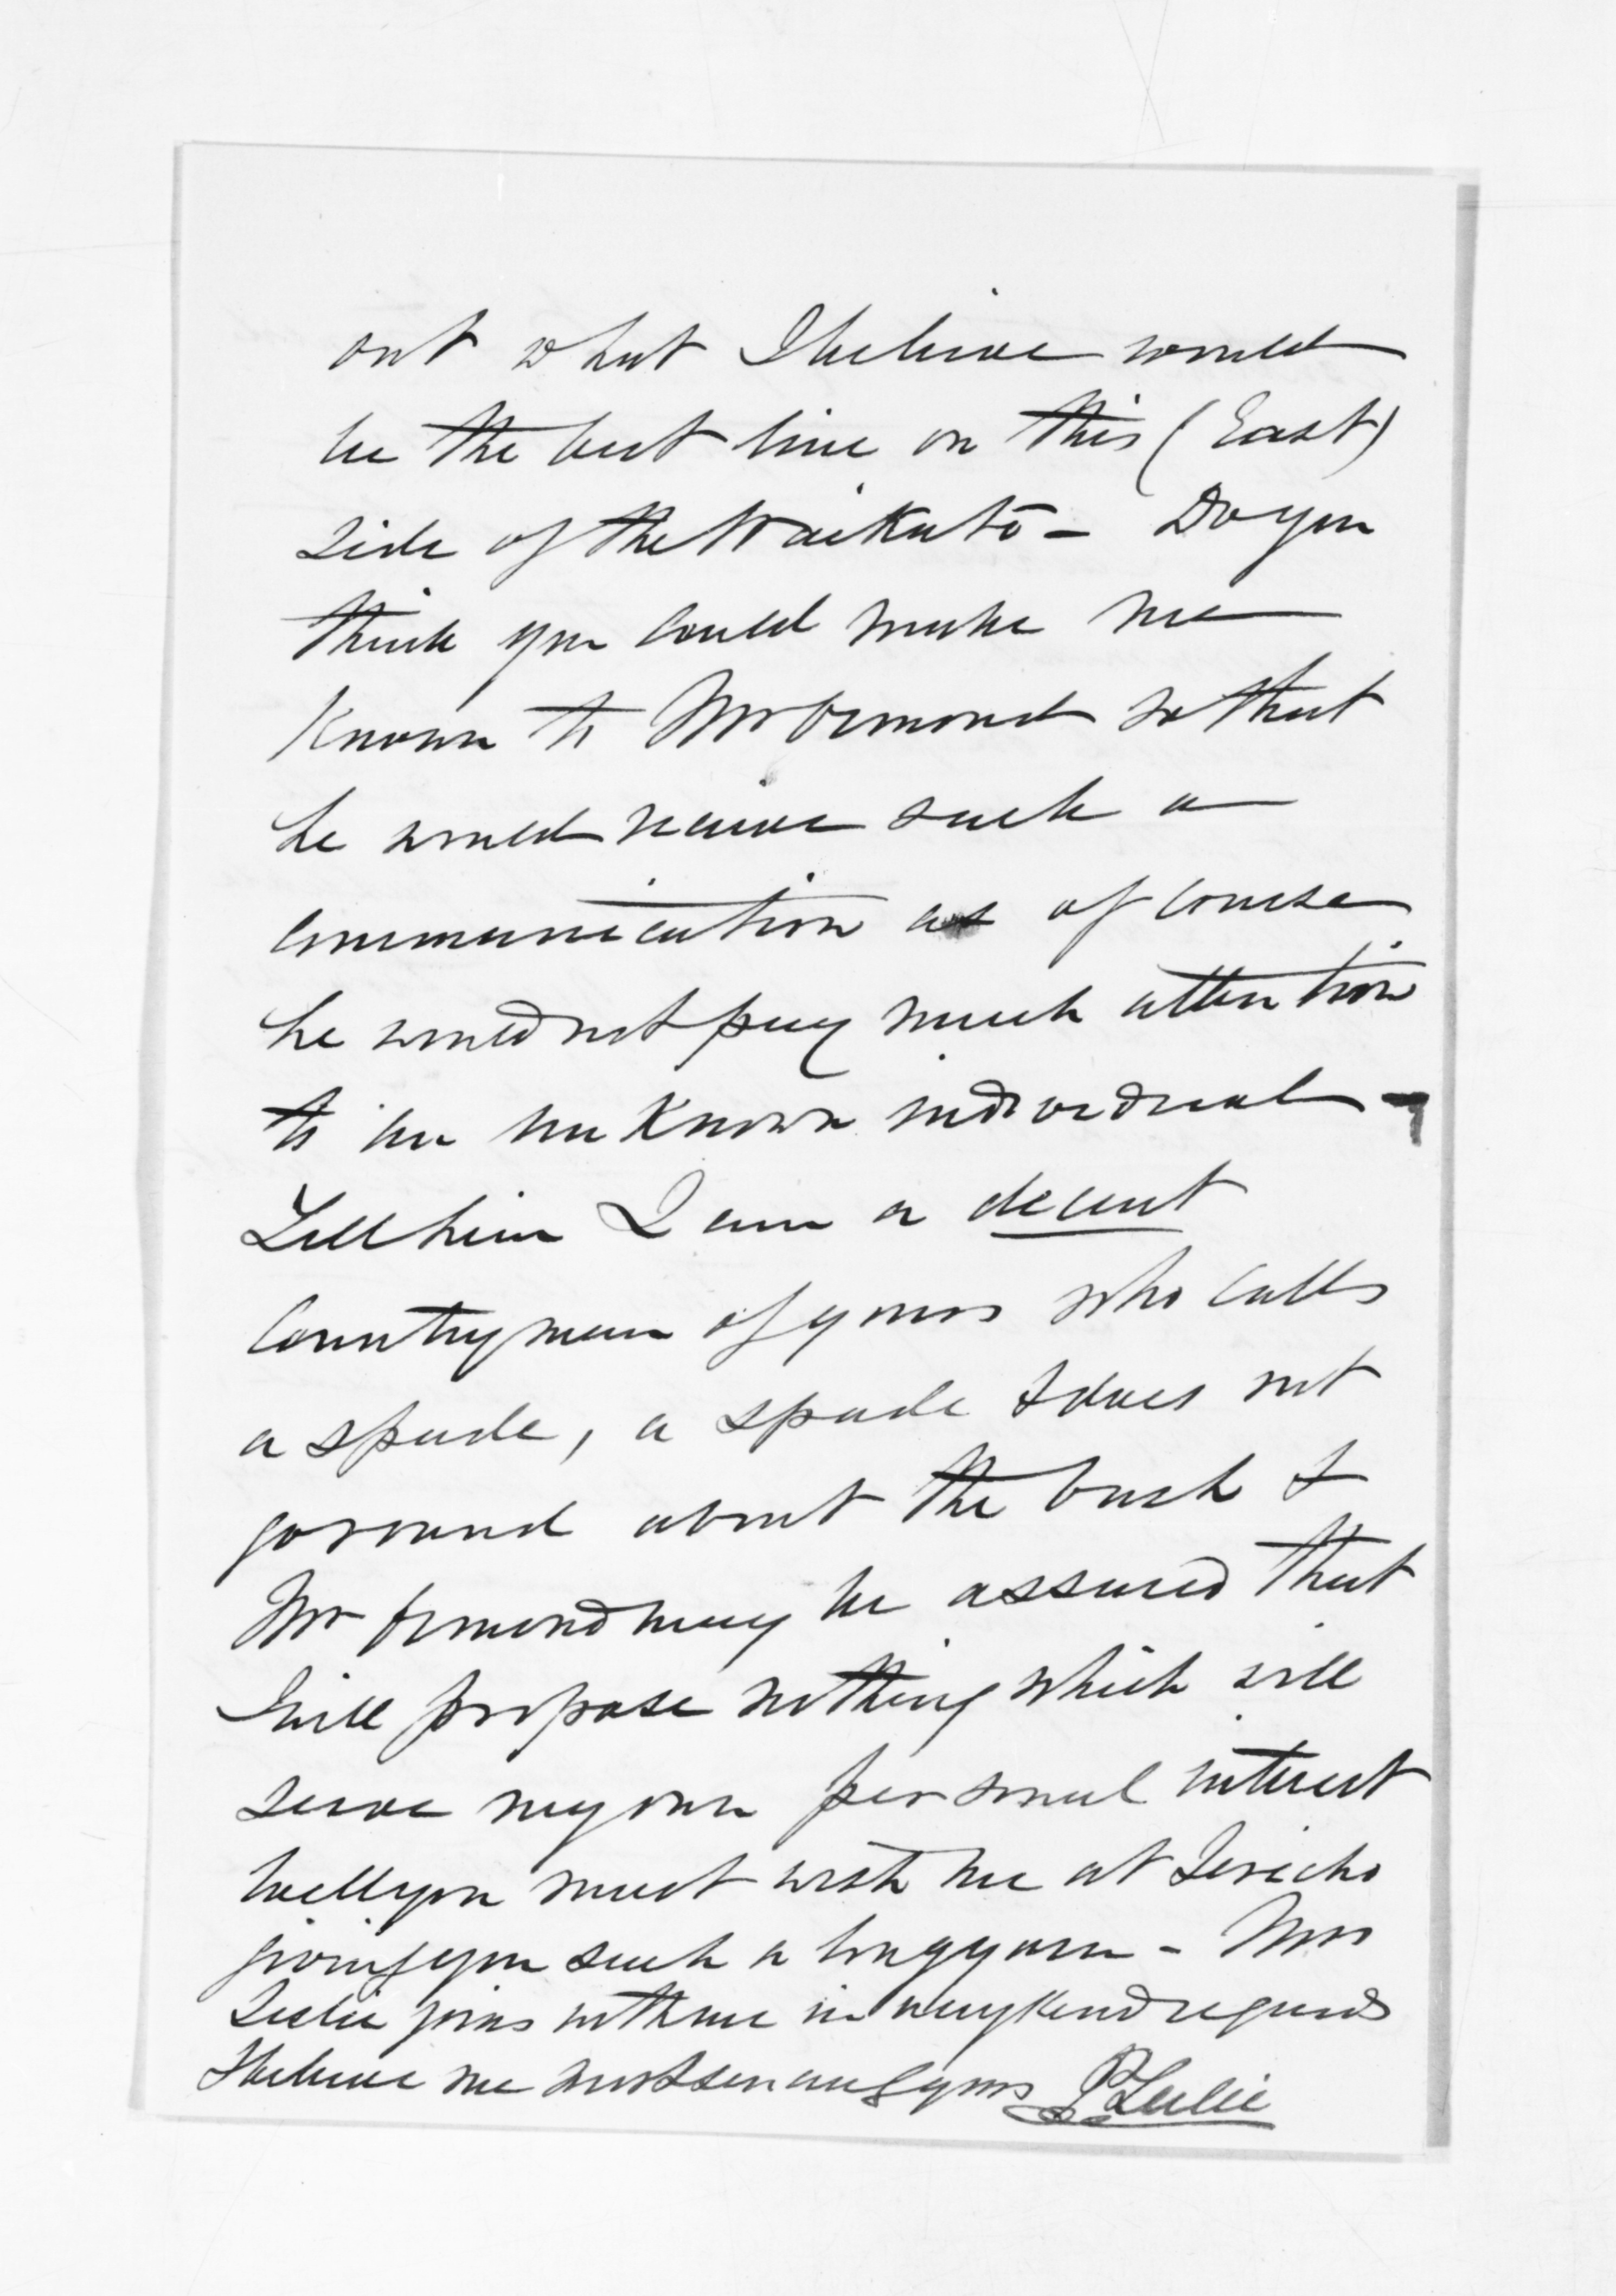 out what I believe would
be the best line on this (East)
side of the Waikato - Do you
think you could make me
known to Mr Ormond so that
he would receive such a
communication as of course
he would not pay much attention
to an unknown individual -
Tell him I am a decent
countryman of yours who calls
a spade, a spade & does not
go round about the bush &
Mr Ormond may be assured that
I will propose nothing which will
serve my own personal interest
Well you must wish me at Jericho
giving you such a long yarn - Mrs
Leslie joins with me in very kind regards
& believe me most sincerely yours P Leslie